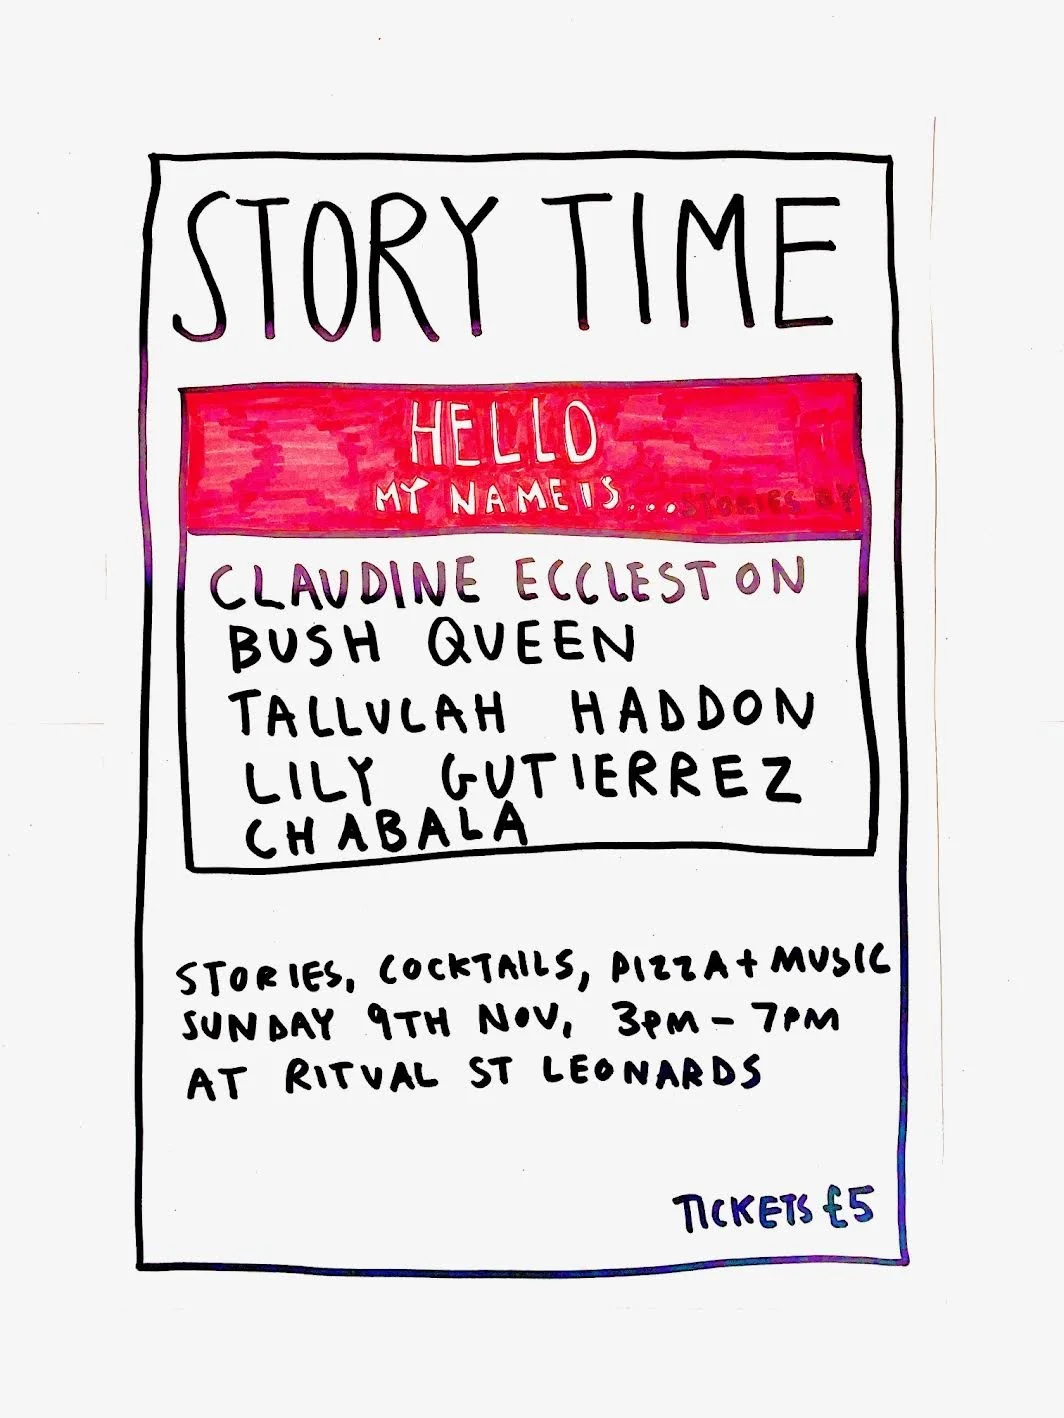 STORY TIME
HELLO
MY NAME IS...STORIES BY
CLAUDINE ECCLESTON
BUSH QUEEN
TALLULAH HADDON
LILY GUTIERREZ
CHABALA
STORIES, COCKTAILS, PIZZA + MUSIC
SUNDAY 9TH NOV, 3PM - 7PM
AT RITUAL ST LEONARDS
TICKETS £5